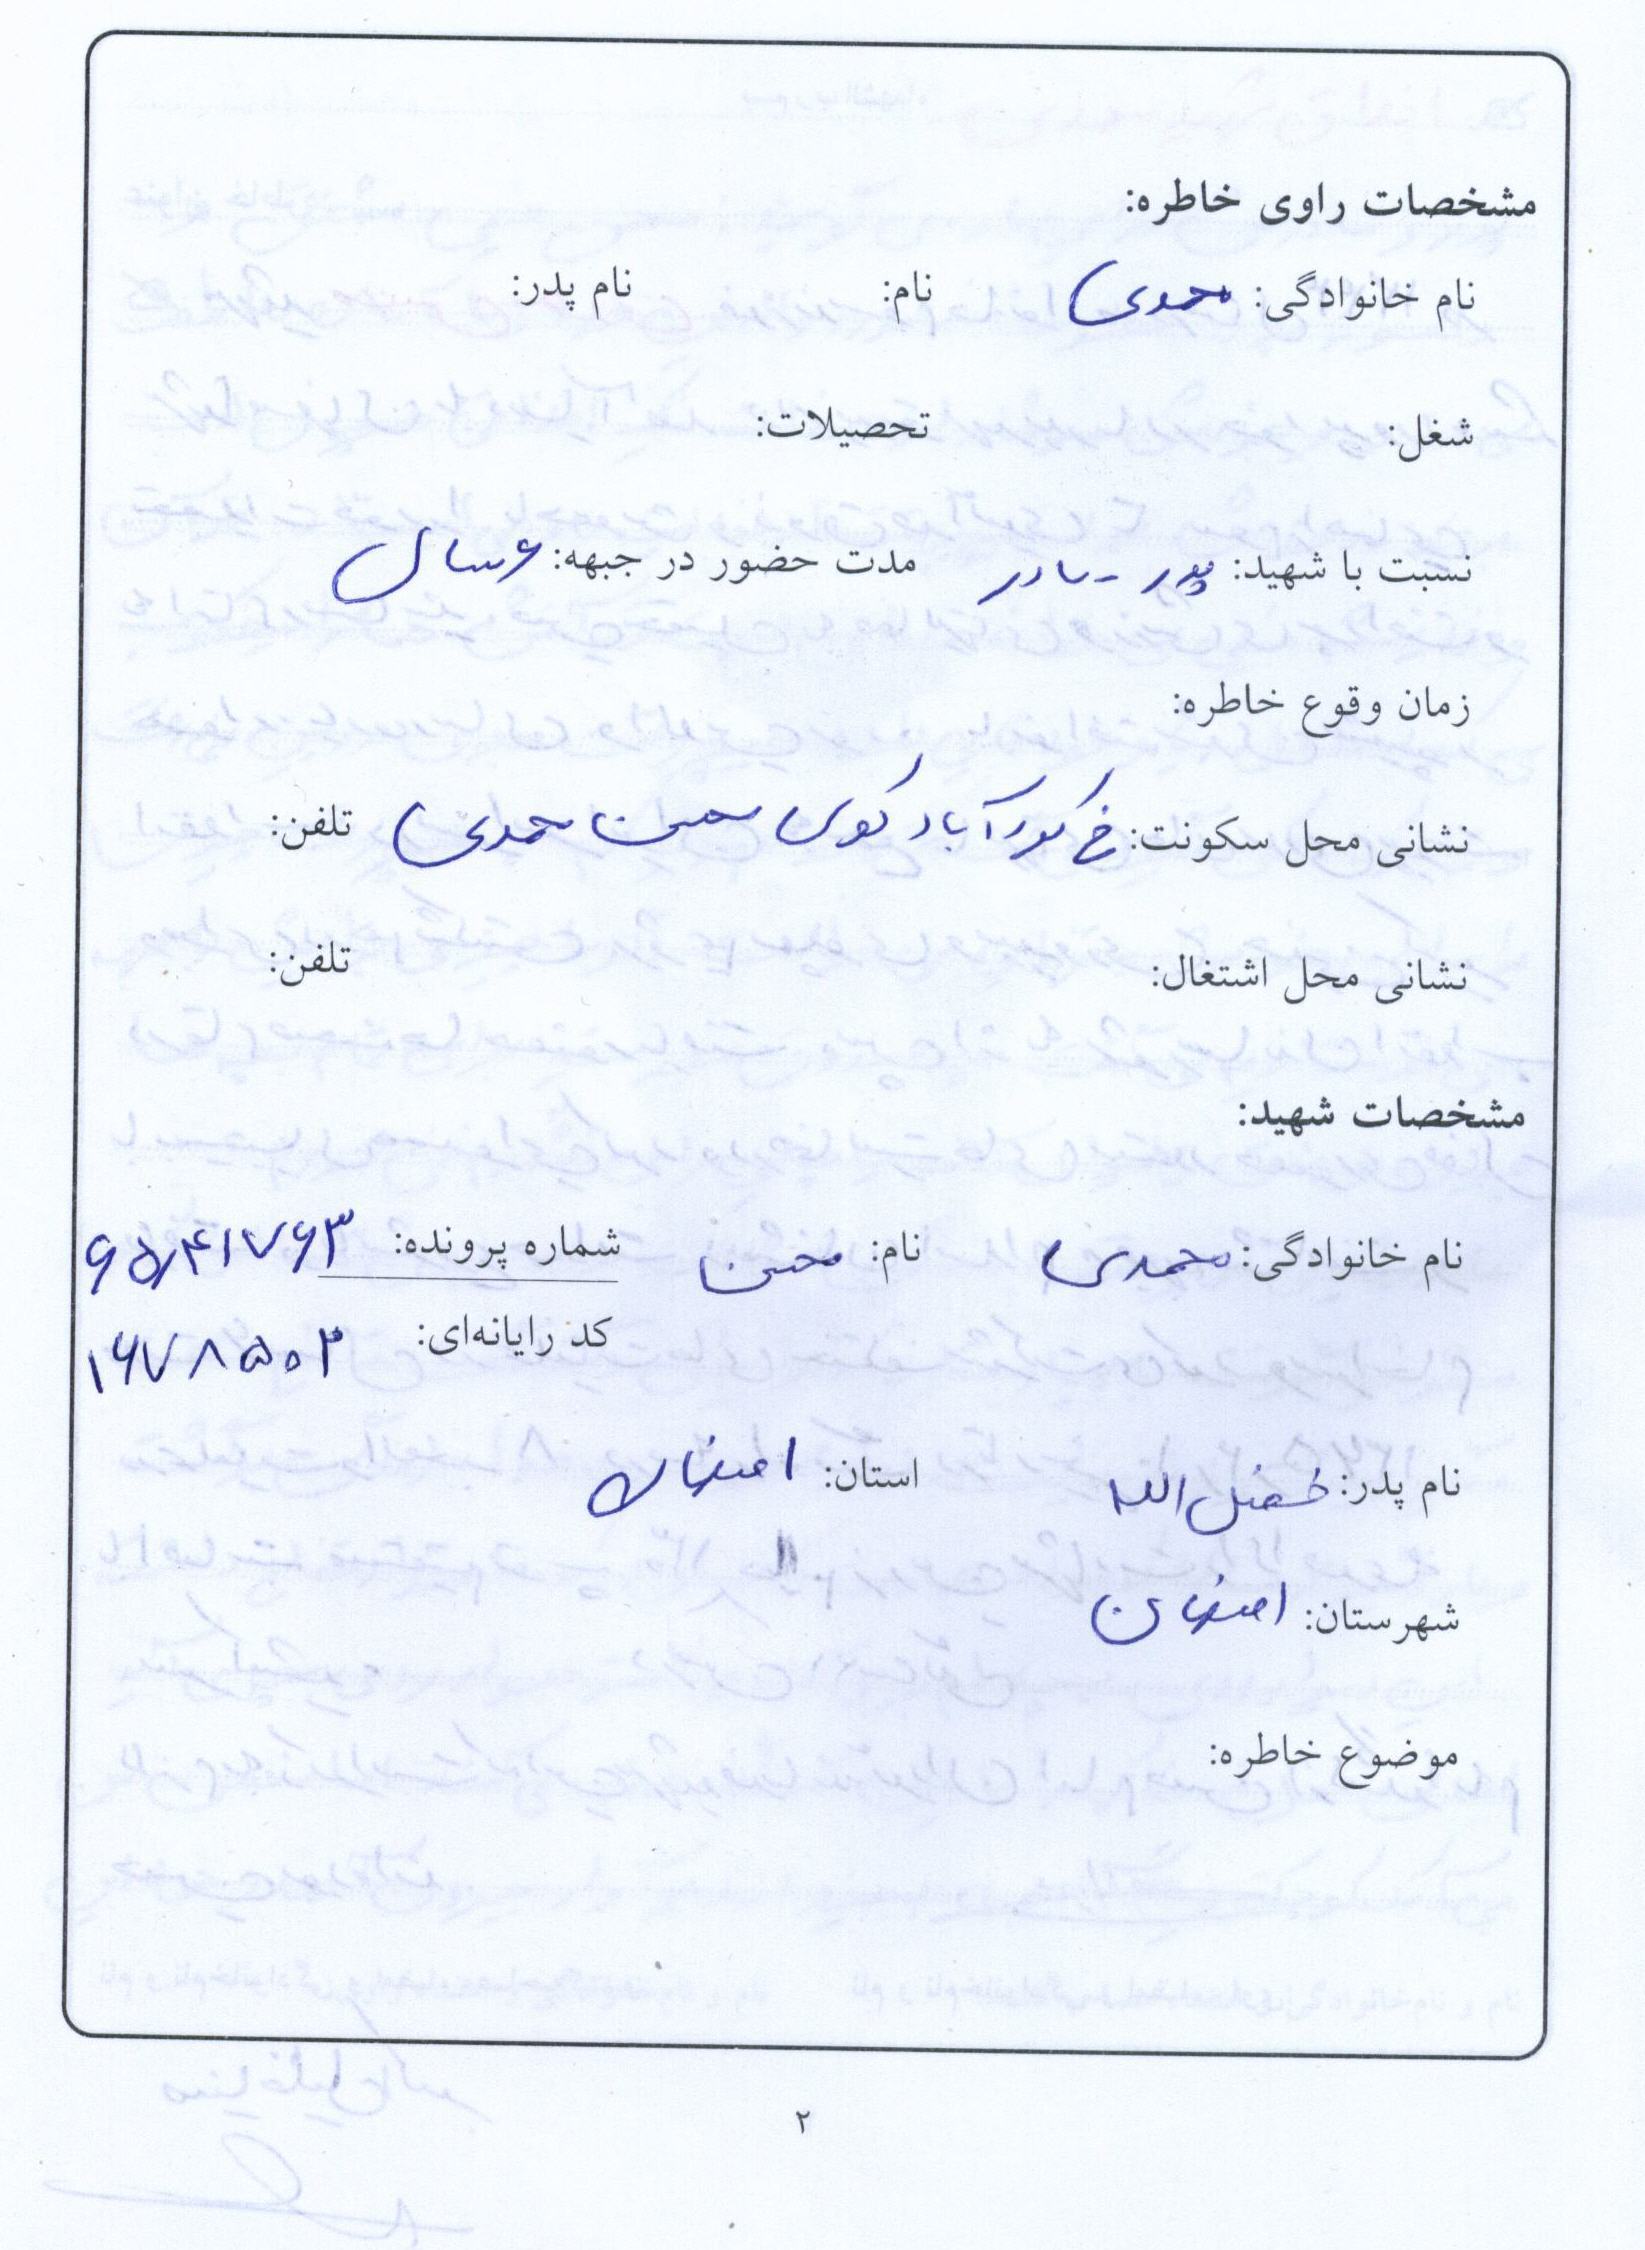 مشخصات راوی خاطره:
نام خانوادگی: محمدی نام: نام پدر:
شغل: تحصیلات:
نسبت با شهید: پدر - مادر مدت حضور در جبهه: ۶ سال
زمان وقوع خاطره:
نشانی محل سکونت: خ آباد کوی محسن محمدی تلفن:
نشانی محل اشتغال: تلفن:
مشخصات شهید:
نام خانوادگی: محمدی نام: محسن شماره پرونده: ۶۵۴۱۷۶۳
کد رایانه‌ای: ۱۶۷۸۵۰۲
نام پدر: فضل الله استان: اصفهان
شهرستان: اصفهان
موضوع خاطره:
۲